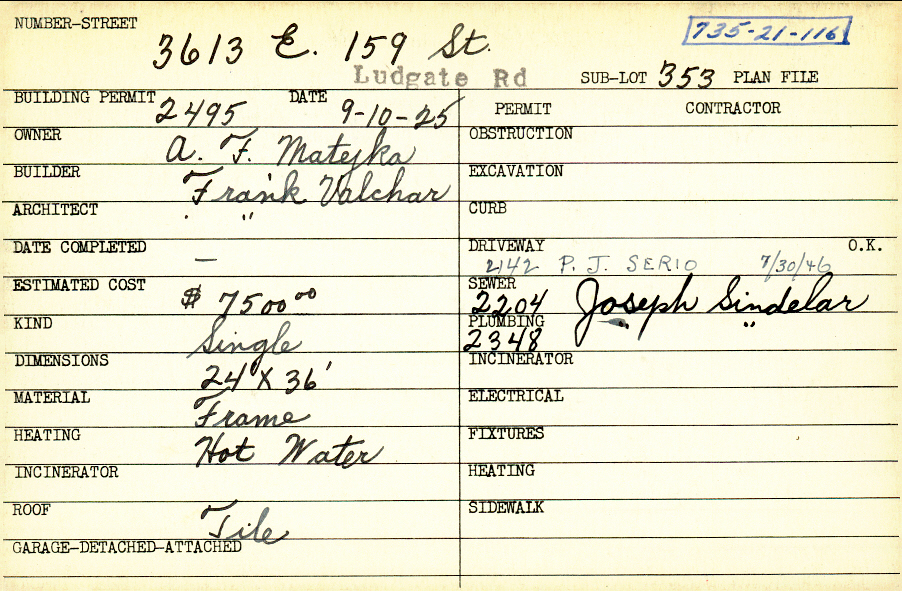 NUMBER-STREET
3613 E. 159 St.
735-21-116
Ludgate Rd
SUB-LOT 353 PLAN FILE
BUILDING PERMIT 2495 DATE 9-10-25
OWNER A. F. Matejka
BUILDER Frank Valchar
ARCHITECT " "
DATE COMPLETED —
ESTIMATED COST $ 7500 00
KIND Single
DIMENSIONS 24' X 36'
MATERIAL Frame
HEATING Hot Water
INCINERATOR
ROOF Tile
GARAGE-DETACHED-ATTACHED
PERMIT CONTRACTOR
OBSTRUCTION
EXCAVATION
CURB
DRIVEWAY O.K.
2142 P. J. SERIO 7/30/46
SEWER
2204 Joseph Sindelar
PLUMBING
2348 " "
INCINERATOR
ELECTRICAL
FIXTURES
HEATING
SIDEWALK